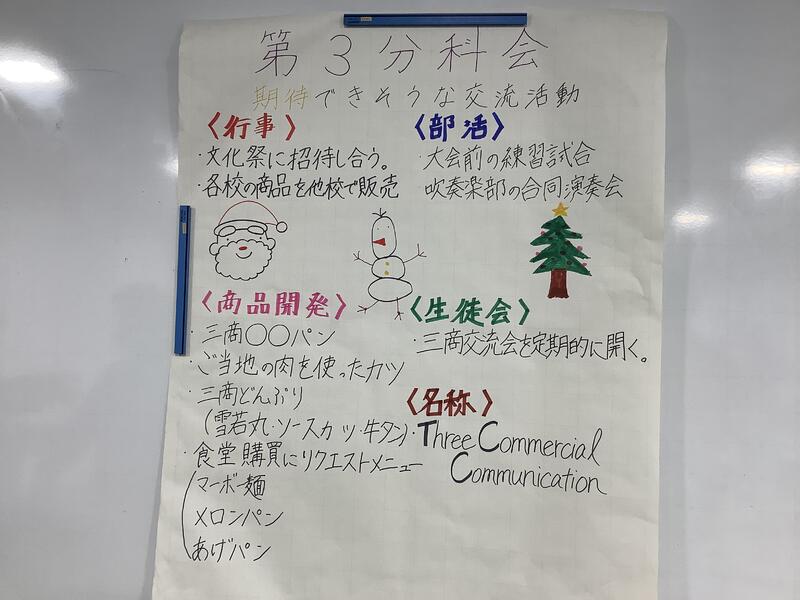 第3分科会
期待できそうな交流活動
〈行事〉
・文化祭に招待し合う。
・各校の商品を他校で販売
〈部活〉
・大会前の練習試合
・吹奏楽部の合同演奏会
〈商品開発〉
・三商〇〇パン
・ご当地の肉を使ったカツ
・三商どんぶり
(雪若丸・ソースカツ・牛タン)
・食堂購買にリクエストメニュー
マーボー麺
メロンパン
あげパン
〈生徒会〉
・三商交流会を定期的に開く。
〈名称〉
・Three Commercial
Communication